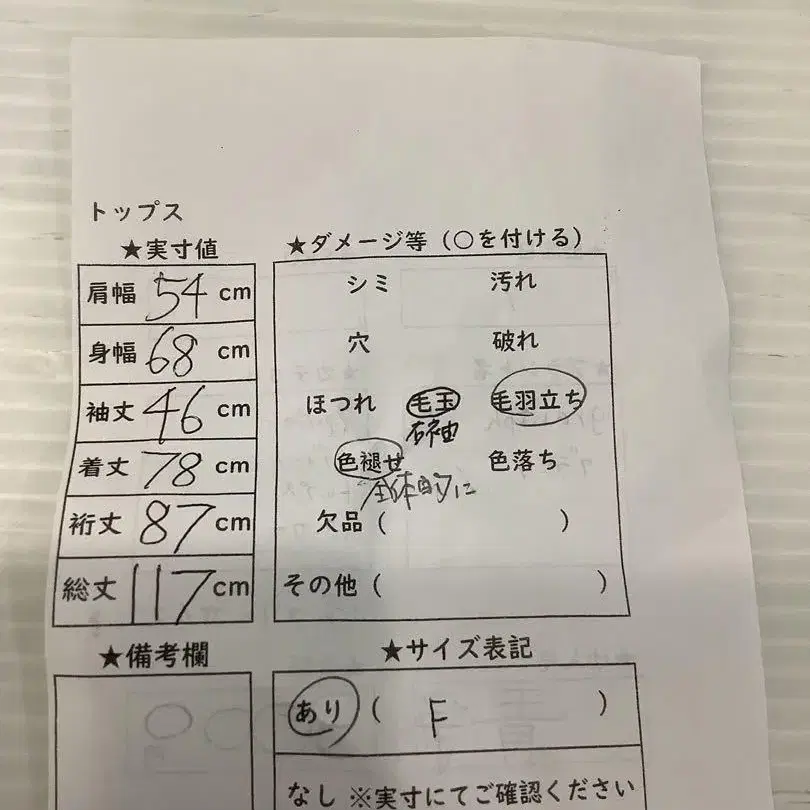 トップス
★実寸値
肩幅 54 cm
身幅 68 cm
袖丈 46 cm
着丈 78 cm
裄丈 87 cm
総丈 117 cm
★備考欄
★ダメージ等（○を付ける）
シミ 汚れ
穴 破れ
ほつれ 毛玉 毛羽立ち
右袖
色褪せ 色落ち
全体的に
欠品（ ）
その他（ ）
★サイズ表記
あり（ F ）
なし ※実寸にてご確認ください